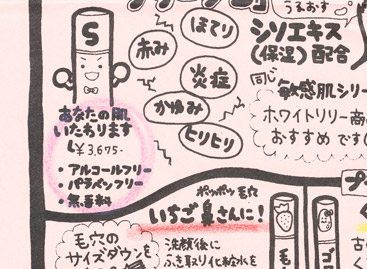 うるおす
S
ほてり
赤み
炎症
かゆみ
ヒリヒリ
シソエキス
(保湿)配合
同じ
敏感肌シリー
ホワイトリリー商
おすすめです(
あなたの肌
いたわります
¥3,675-
・アルコールフリー
・パラベンフリー
・無香料
ポツポツ毛穴
いちご鼻さんに!
毛穴の
サイズダウンを
洗顔後に
ふき取り化粧水を
毛
ゴ
古
く